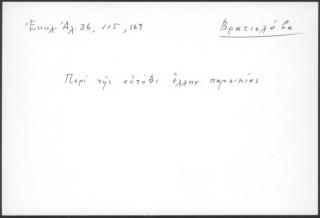 Ἐκκλ. Ἀλ. 36, 115, 169
Βρατισλάβα
Περὶ τῆς αὐτόθι ἑλλην. παροικίας